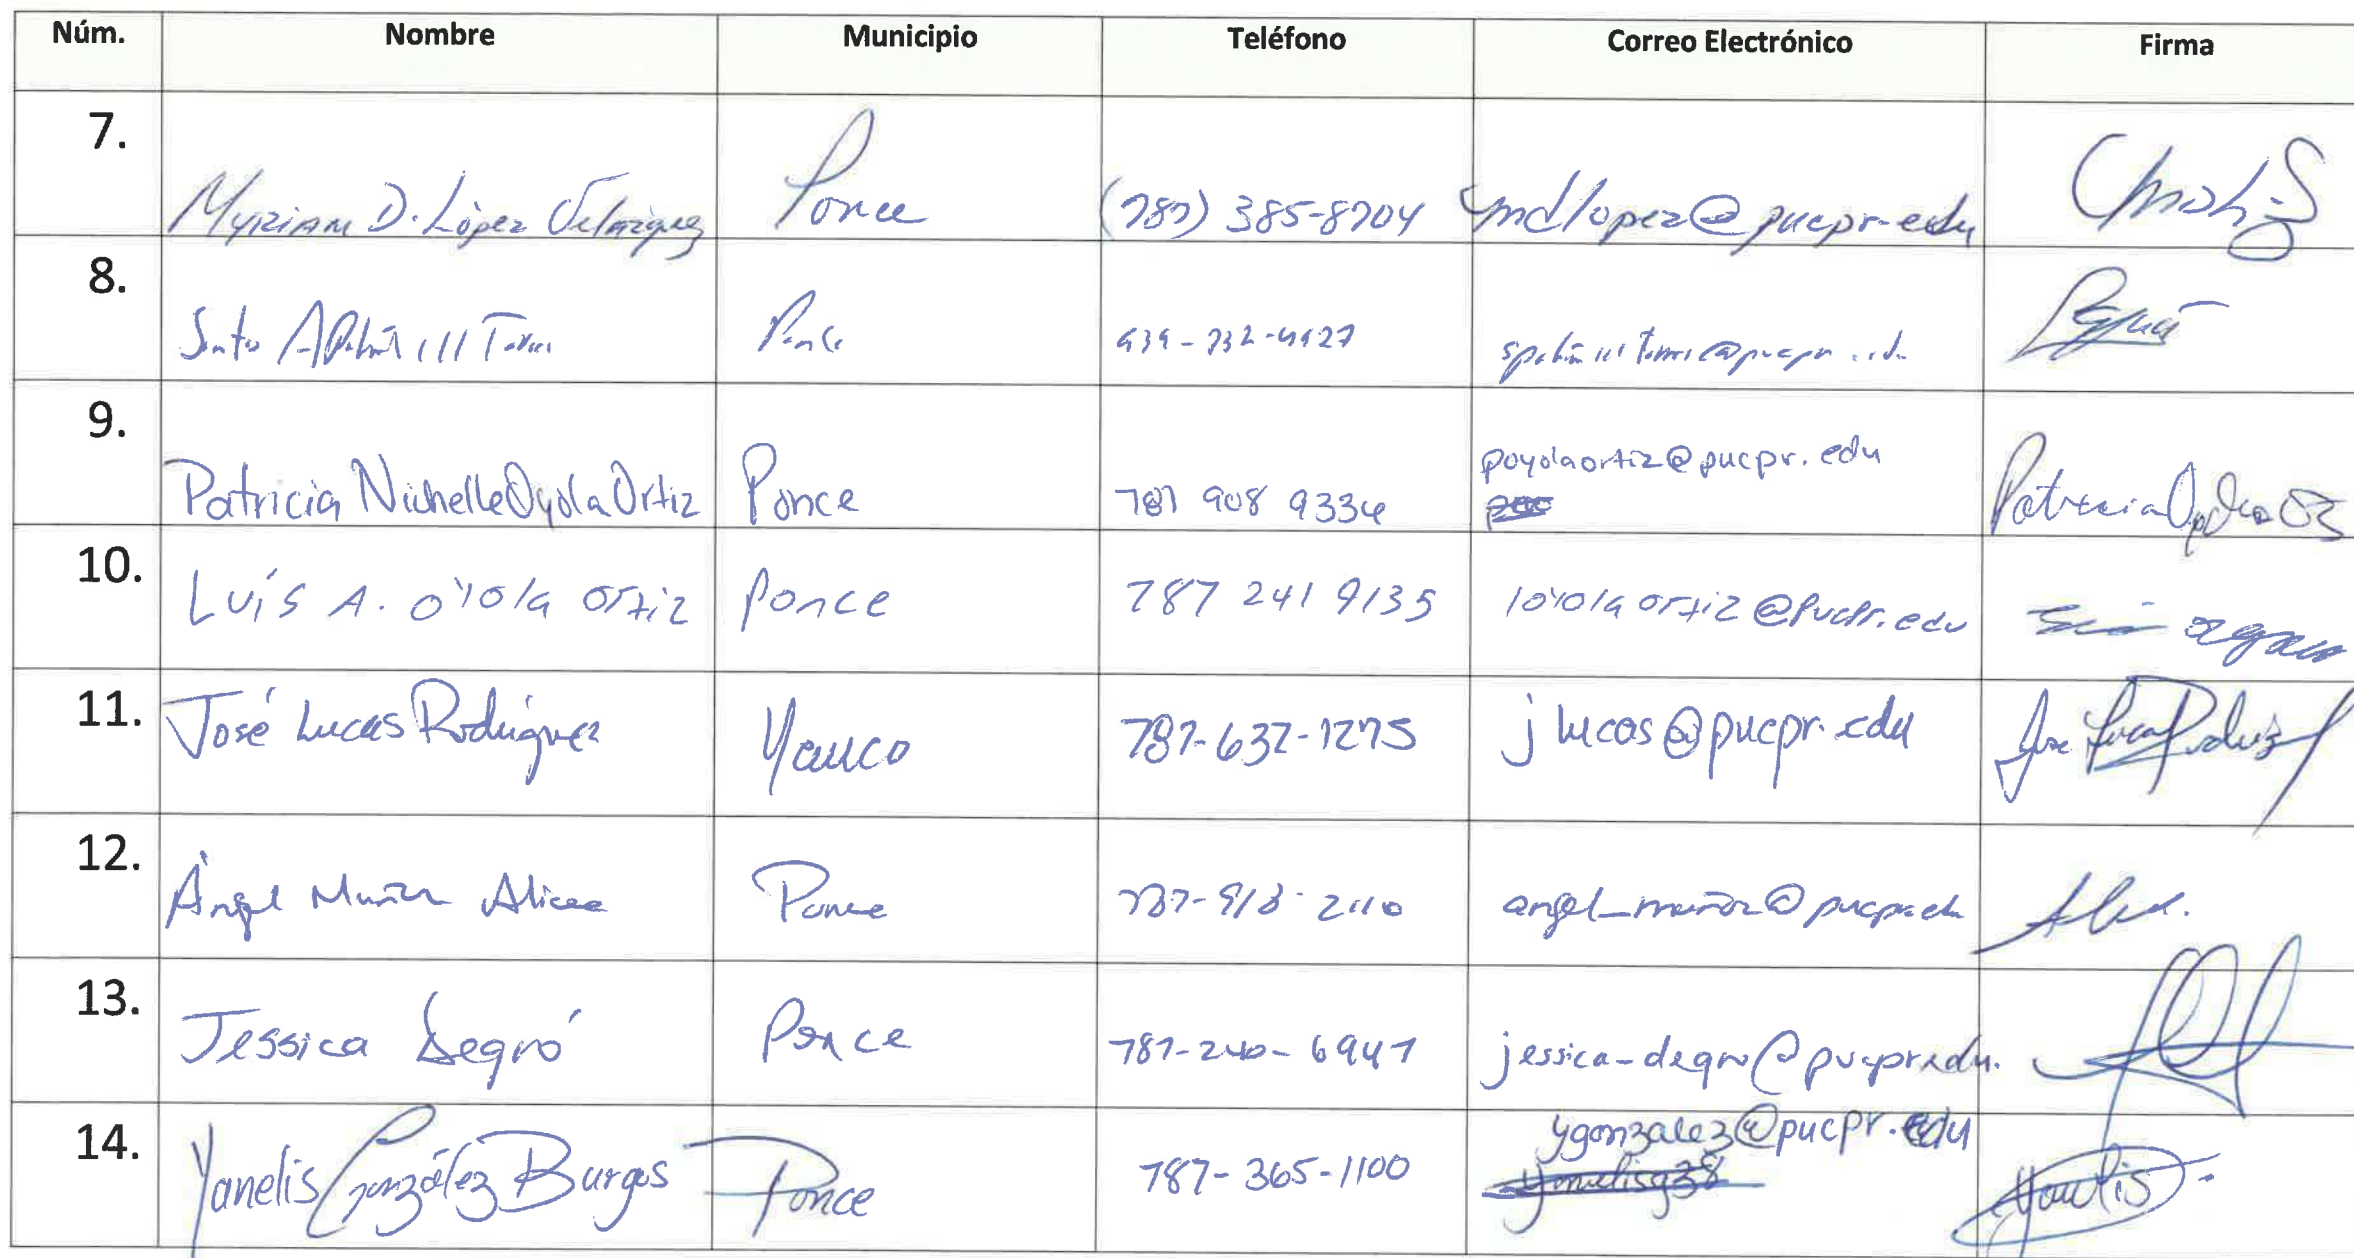 Núm. Nombre Municipio Teléfono Correo Electrónico Firma
7. Myriam D. López Velázquez Ponce (787) 385-8704 mdlopez@pucpr.edu
8. Ponce
9. Patricia Nichelle Oyola Ortiz Ponce 787 908 9334 poyolaortiz@pucpr.edu Patricia Oyola
10. Luis A. oyola ortiz Ponce 787 241 9135 loyolaortiz@Pucpr.edu
11. José Lucas Rodríguez Yauco 787-632-1275 jlucas@pucpr.edu Jose Lucas Rodriguez
12. Ángel Muñoz Alicea Ponce 787-913-2110 angel_muñoz@pucpr.edu
13. Jessica Degró Ponce 787-240-6947 jessica-degro@pucpr.edu.
14. Yanelis González Burgos Ponce 787-365-1100 ygonzalez@pucpr.edu Yanelis